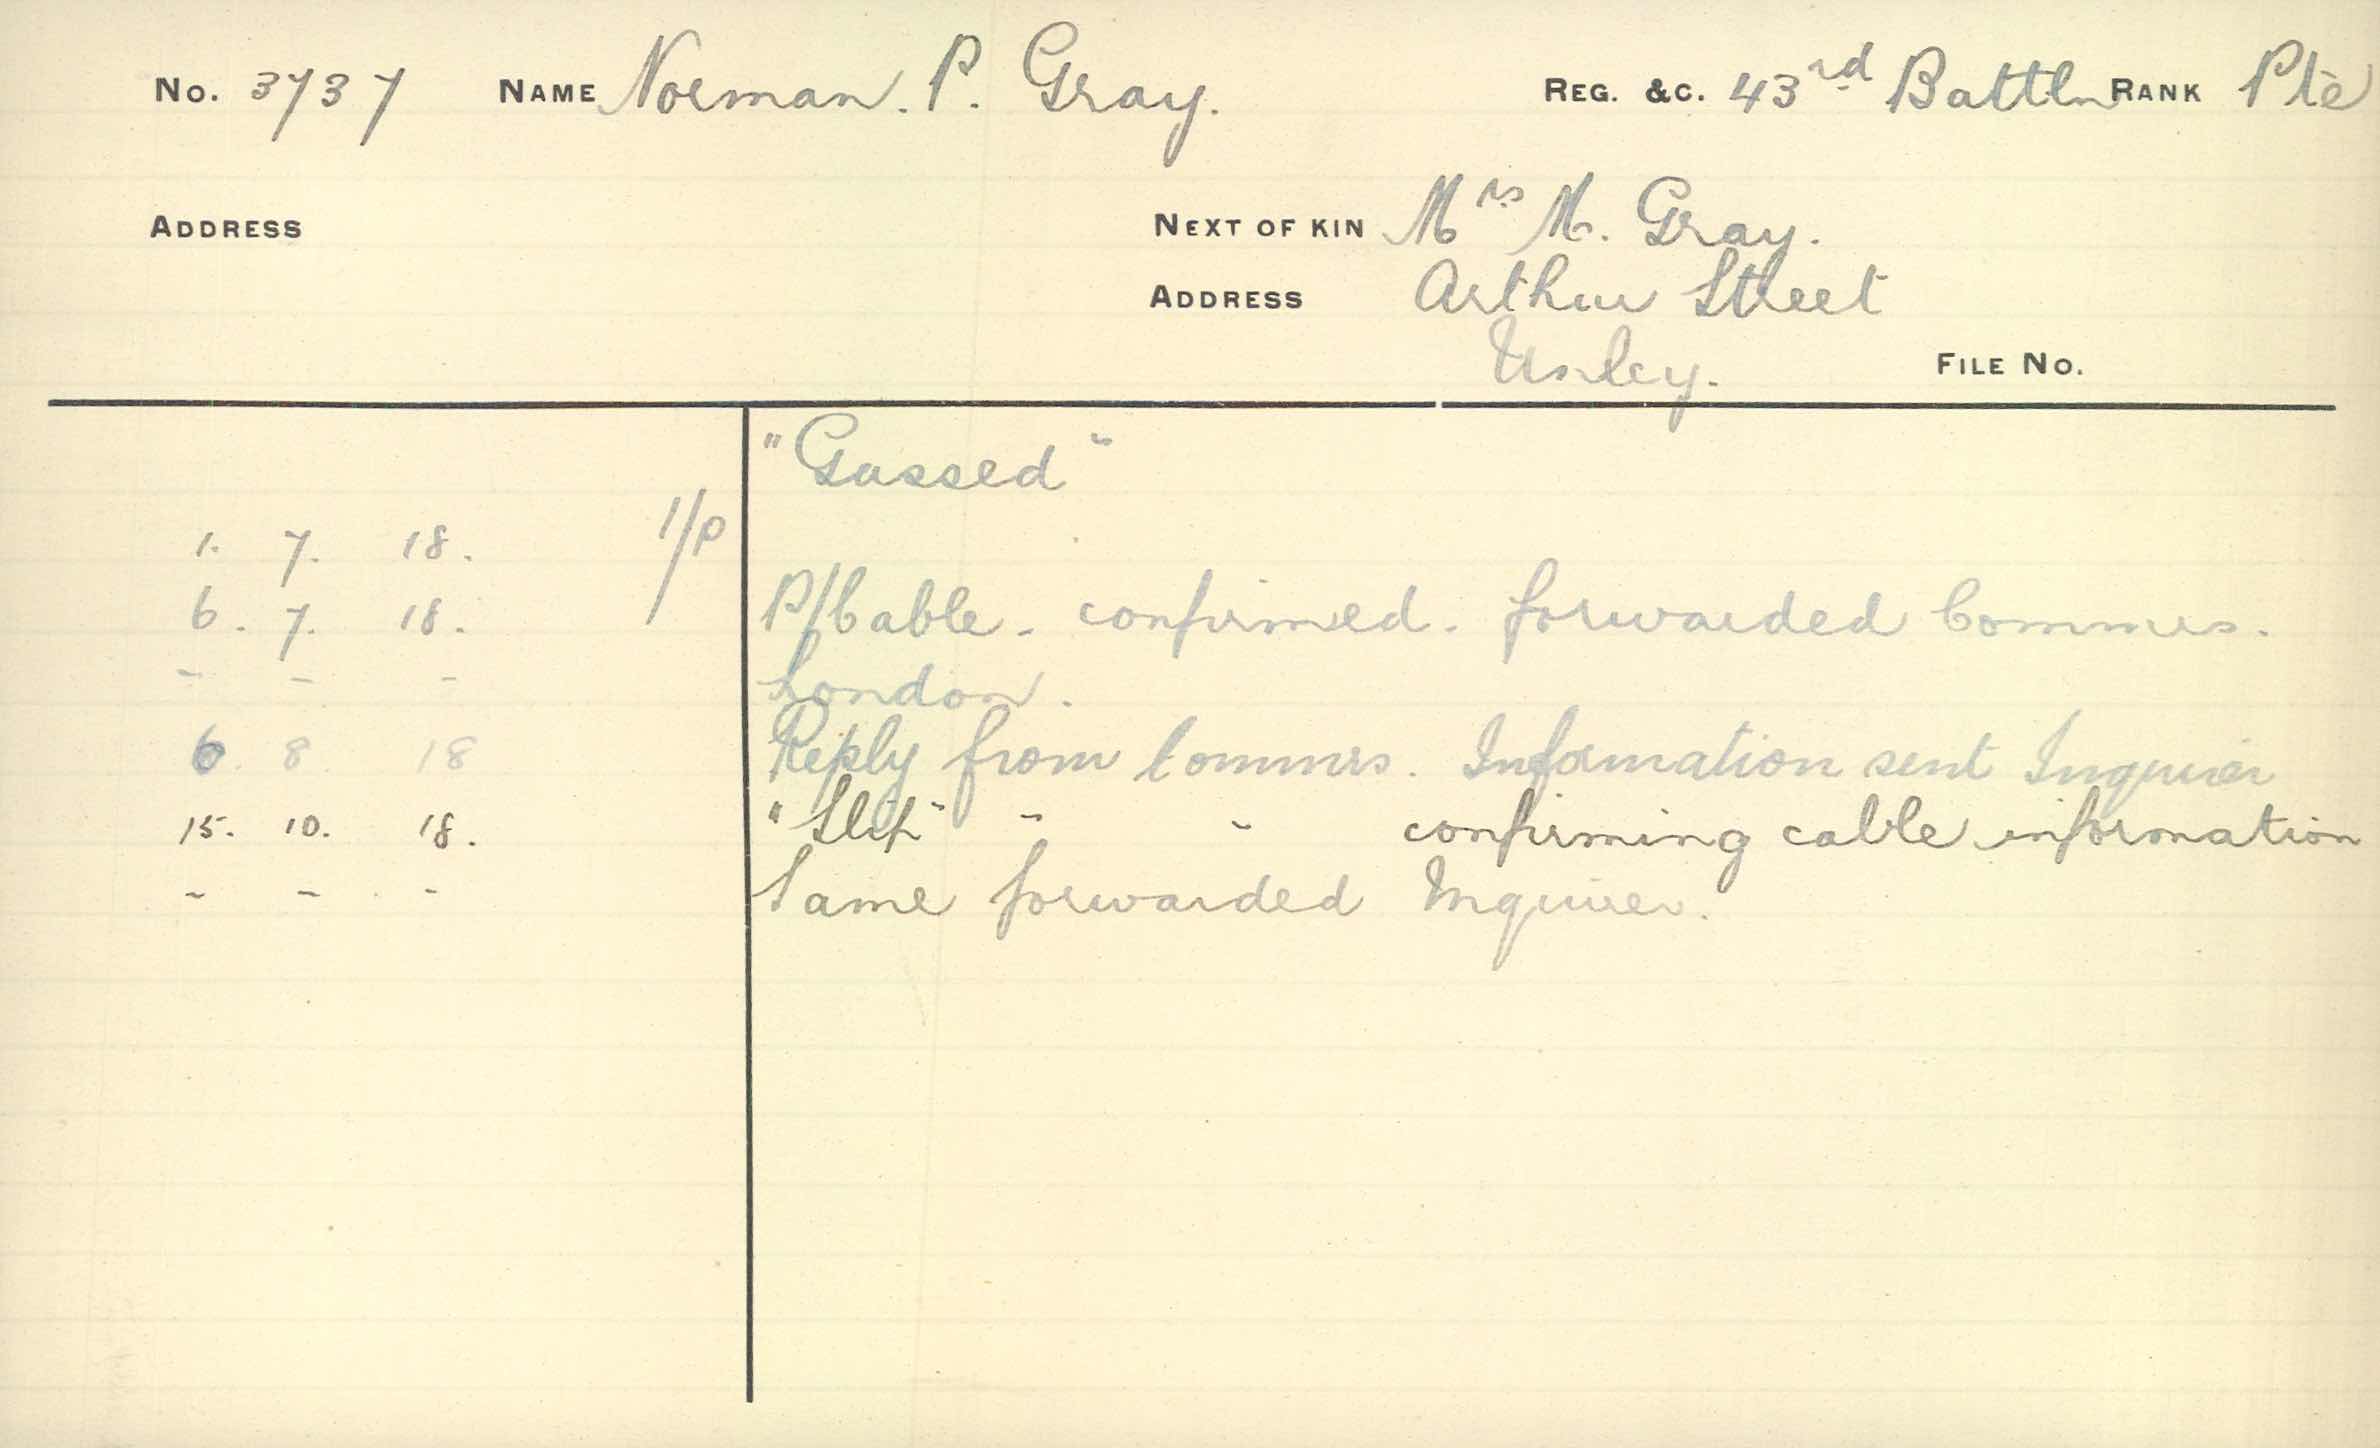 No. 3737 NAME Norman. P. Gray. REG. &C. 43rd Battln RANK Pte
ADDRESS NEXT OF KIN Mrs M. Gray.
ADDRESS Arthur Street
Unley. FILE No.
"Gassed"
1. 7. 18. 1/P
6. 7. 18. P/Cable. confirmed. forwarded Commrs.
- - - London.
6. 8. 18 Reply from Commrs. Information sent Inquirer
15. 10. 18. "Slip" " " confirming cable information
- - - Same forwarded Inquirer.